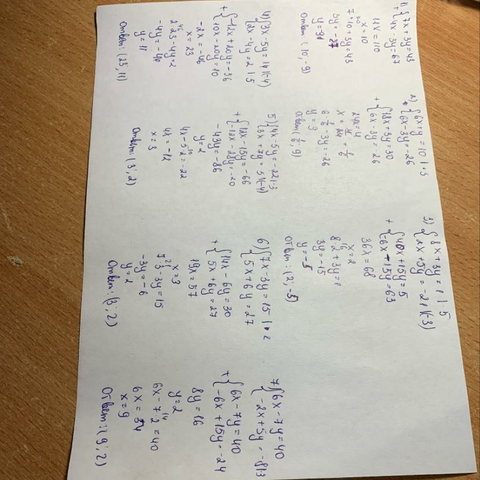 1) {7x + 3y = 43
+ {4x - 3y = 67
11x = 110
x = 10
7·10 + 3y = 43
3y = -27
Ответ: (10; -9)
2) {6x + y = 10 |·3
{6x - 3y = -26
+ {18x + 3y = 30
{6x - 3y = -26
24x = 4
6·1/6 - 3y = -26
y = 9
Ответ: (1/6; 9)
3) {8x + 3y = 1 | 5
{2x - 5y = -21 |(-3)
+ {40x + 15y = 5
{-6x + 15y = 63
x = 2
8·2 + 3y = 1
3y = -15
y = -5
Ответ: (2; -5)
4) {3x - 5y = 14 |(-4)
{2x - 4y = 2 | 5
+ {-12x + 20y = -56
{10x - 20y = 10
-2x = -46
x = 23
2·23 - 4y = 2
-4y = -44
y = 11
Ответ: (23; 11)
5) {4x - 5y = -22 |·3
+ {12x - 15y = -66
-43y = -86
y = 2
4x - 5·2 = -22
4x = -12
x = -3
6) {7x - 3y = 15 |·2
{5x + 6y = 27
+ {14x - 6y = 30
{5x + 6y = 27
19x = 57
x = 3
7·3 - 3y = 15
-3y = -6
y = 2
Ответ: (3; 2)
7) {6x - 7y = 40
{-2x + 5y = -8 |3
+ {6x - 7y = 40
{-6x + 15y = -24
8y = 16
y = 2
6x - 7·2 = 40
6x = 54
x = 9
Ответ: (9; 2)